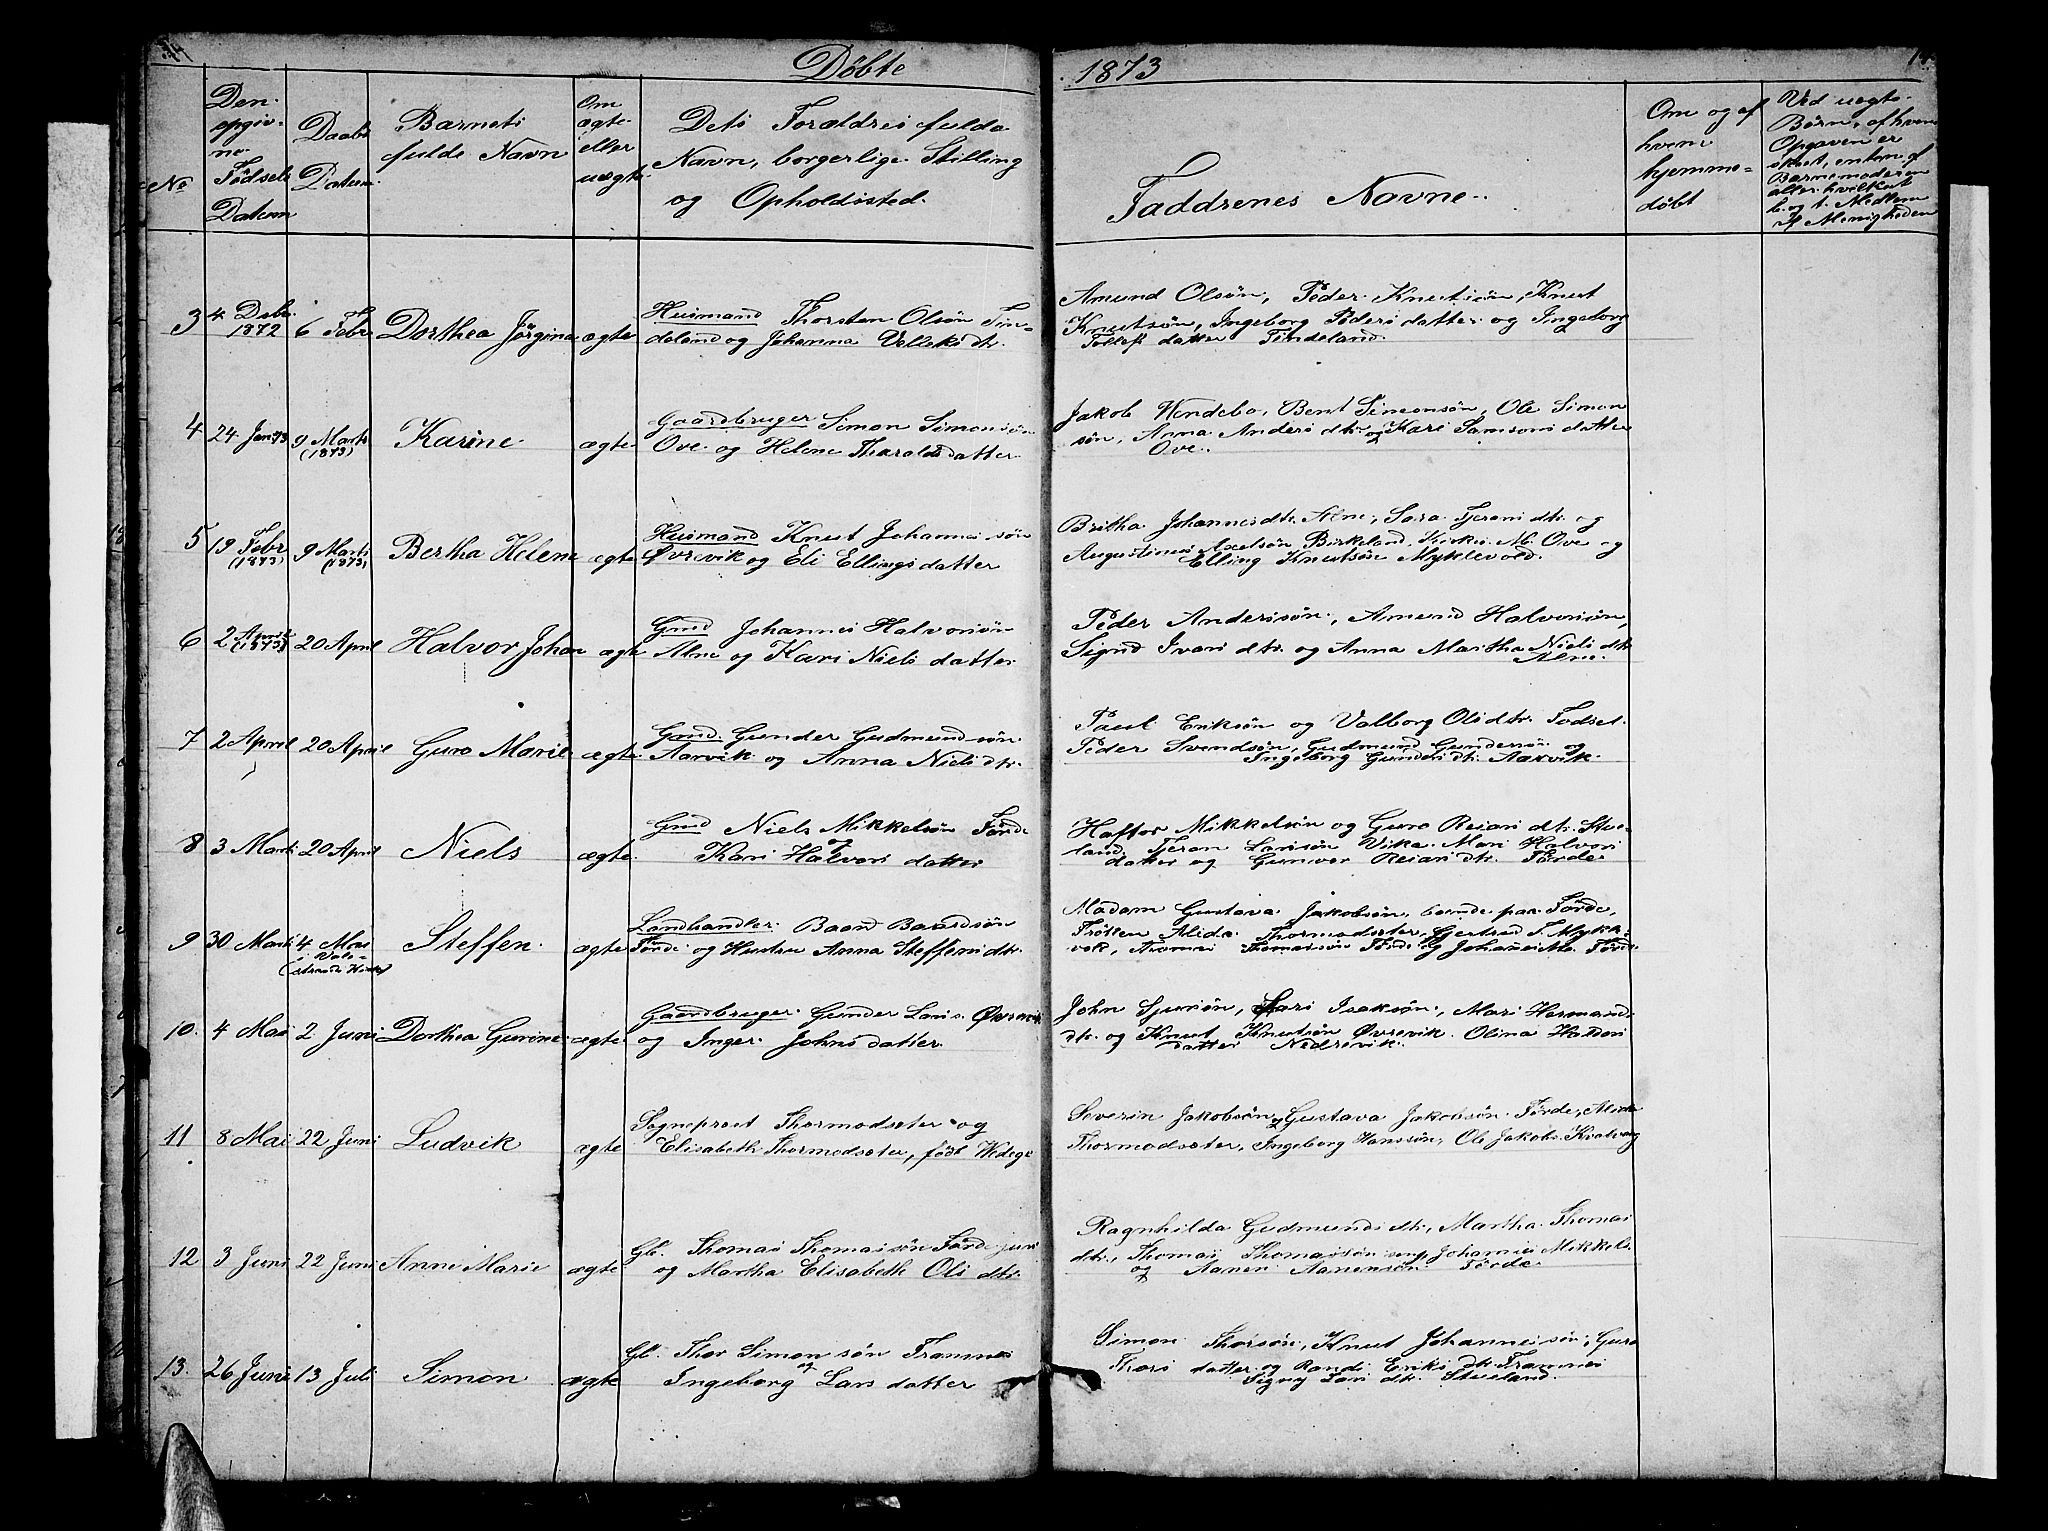 Døbte
1873
No
Den
opgiv-
ne
Fødsels
Datum
Daabs
Datum
Barnets
fulde Navn
Om
ægte
eller
uægte
Dets Forældres fulde
Navn, borgerlige Stilling
og Opholdssted.
Faddrenes Navne.
Om og af
hvem
hjemme-
døbt
Ved uægte
Børn, af hvem
Opgaven er
skeet, enten af
Barnemoderen
eller hvilket
b. og t. Medlem
af Menigheden
3
4 Debr.
1872
6 Febr
Dorthea Jørgina
ægte
Husmand Thorsten Olsøn Tin-
deland og Johanna Vellesdtr.
Amund Olsøn, Peder Knutsøn, Knut
Knutsøn, Ingeborg Pedersdatter og Ingeborg
Tollefsdatter Tindeland.
4
24 Jan 73
9 Marts
(1873)
Karine
ægte
Gaardbruger Simon Simonsøn
Ove og Helene Tharaldsdatter
Jakob Vendebo, Bent Simonsøn, Ole Simon
søn, Anna Andersdtr. og Kari Samsonsdatter
Ove.
5
19 Febr
(1873)
9 Marts
(1873)
Bertha Helene
ægte
Husmand Knut Johannessøn
Øvrevik og Eli Ellingsdatter
Britha Johannesdtr. Alne, Sara Tjeransdtr. og
Augustinus Axelsøn Birkeland, Kirkes. M. Ove og
Elling Knutsøn Myklevold.
6
2 April
(1873)
20 April
Halvor Johan
ægte
Gmd Johannes Halvorsøn
Alne og Kari Nielsdatter
Peder Andersøn, Amund Halvorsøn,
Signð Ivarsdtr. og Anna Martha Nielsdtr.
Alne.
7
2 April
20 April
Guro Marie
ægte
Gmd. Gunder Gudmundsøn
Aarvik og Anna Nielsdtr.
Paul Eriksøn og Valborg Olsdtr. Fodset.
Peder Svendsøn, Gudmund Gundersøn og
Ingeborg Gundersdtr. Aarvik.
8
3 Marts
20 April
Niels
ægte
Gmd Niels Mikkelsøn Førde
og
Kari Halvorsdatter
Haftor Mikkelsøn og Guro Reiarsdtr. Stue-
land, Tjeran Larssøn Vika. Mari Halvors
datter og Gunvor Reiarsdtr. Førde
9
30 Marts
4 Mai
i Vale-
(strands Kirke)
Steffen
ægte
Landhandler Baard Baardsøn
Førde og Hustru Anna Steffensdtr.
Madam Gustava Jakobsøn, boende paa Førde,
Frøken Alida Thormodsæter, Gjertrud T. Mykle-
vik, Thomas Thomassøn Førde og Johannes M. Førde
10.
4 Mai
2 Juni
Dorthea Gurine
ægte
Gaardbruger Gunder Lars. Øvrevik
og Inger Johnsdatter
John Sjursøn, Lars Isaksøn, Mari Hermands
dtr. og Knut Knutsøn Øvrevik. Olina Haldors
datter Nedrevik.
11
8 Mai
22 Juni
Ludvik
ægte
Sogneprest Thormodsæter og
Elisabeth Thormodsæter, født Wedege
Severin Jakobsøn og Gustava Jakobsøn Førde, Alida
Thormodsæter, Ingeborg Hanssøn, Ole Jakobs. Kvalvaag
12
3 Juni
22 Juni
Anne Marie
ægte
Gb. Thomas Thomassøn Førde juni
og Martha Elisabeth Olsdtr.
Ragnhilda Gudmundsdtr., Martha Thomas
dtr., Thomas Thomassøn ung, Johannes Mikkels.
og Aanen Aanensøn Førde.
13.
26 Juni
13 Juli
Simon
ægte
Gb. Thor Simonsøn Framnes
og
Ingeborg Larsdatter
Simon Thorsøn, Knut Johannessøn, Guro
Thorsdatter og Randi Eriksdtr. Framnes
Signy Larsdtr. Stueland.